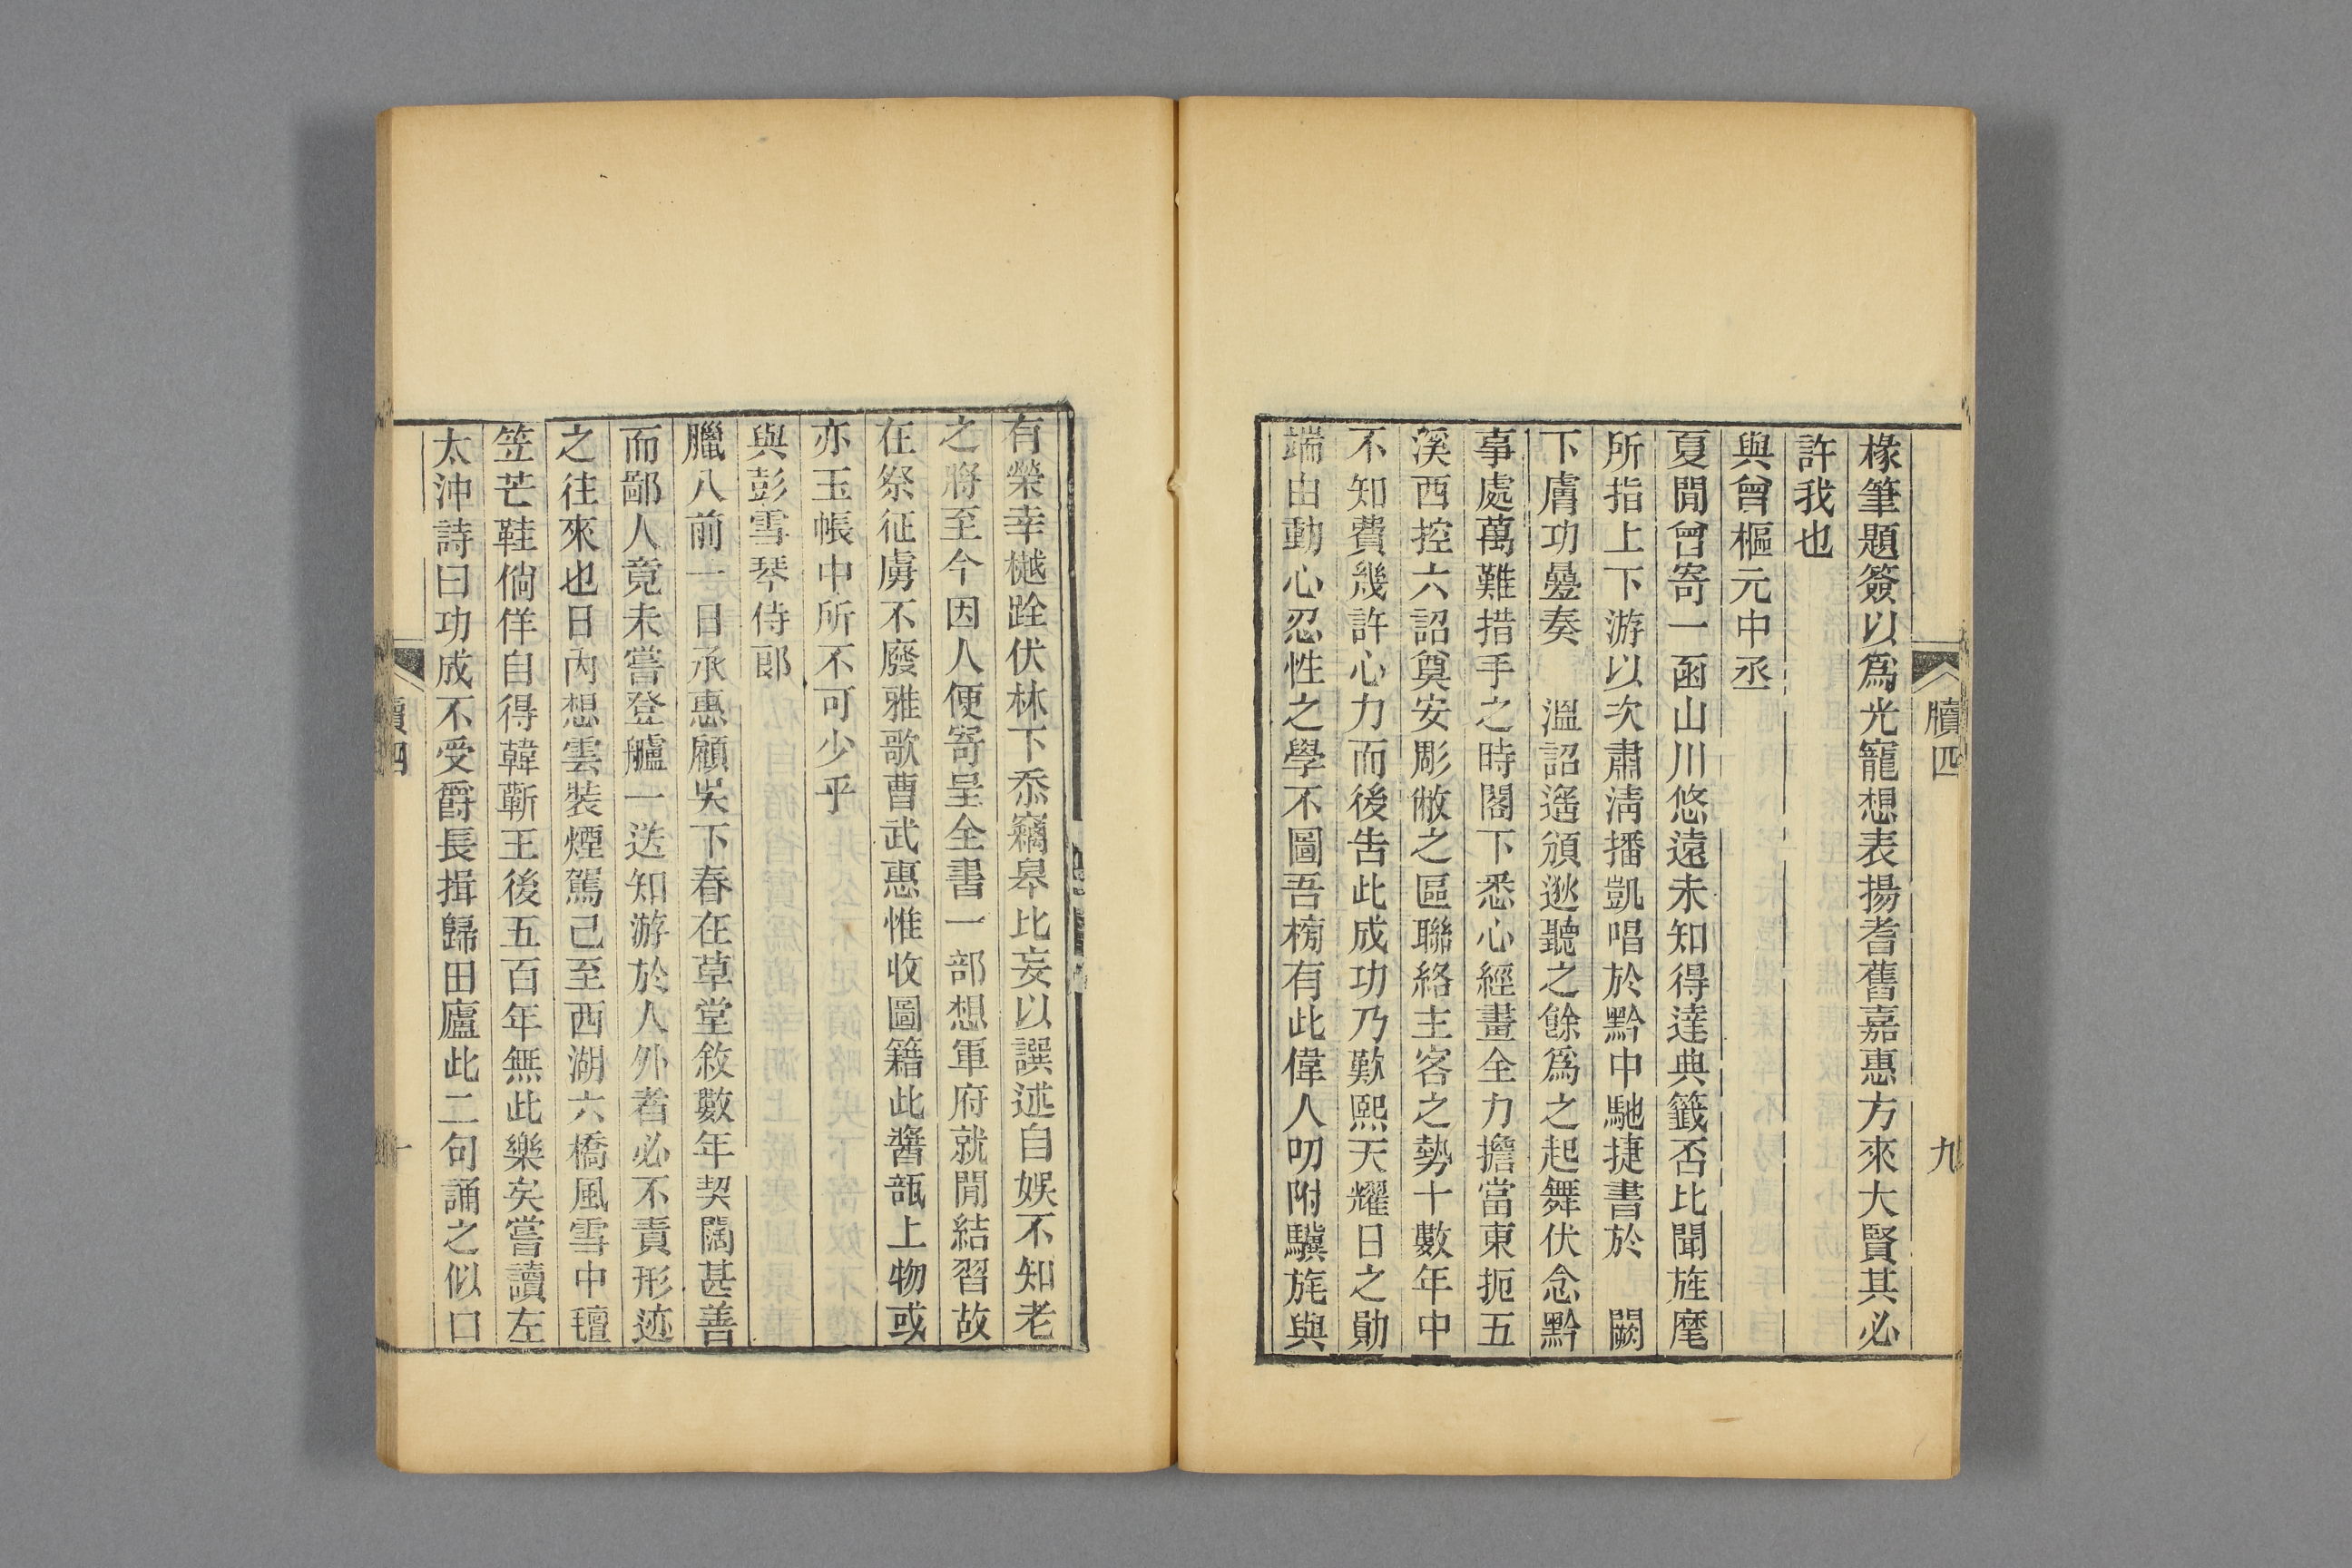 牘四
九
椽筆題簽以爲光寵想表揚耆舊嘉惠方來大賢其必
許我也
與曾樞元中丞
夏間曾寄一函山川悠遠未知得達典籤否比聞旌麾
所指上下游以次肅淸播凱唱於黔中馳捷書於　闕
下膚功曡奏　溫詔遙頒逖聽之餘爲之起舞伏念黔
事處萬難措手之時閣下悉心經畫全力擔當東扼五
溪西控六詔奠安彫敝之區聯絡主客之勢十數年中
不知費幾許心力而後告此成功乃歎熙天耀日之勛
端由動心忍性之學不圖吾榜有此偉人叨附驥旄與
有榮幸樾跧伏林下忝竊皋比妄以譔述自娛不知老
之將至今因人便寄呈全書一部想軍府就閒結習故
在祭征虜不廢雅歌曹武惠惟收圖籍此醬瓿上物或
亦玉帳中所不可少乎
與彭雪琴侍郎
臘八前一日承惠顧吳下春在草堂敘數年契闊甚善
而鄙人竟未嘗登艫一送知游於人外者必不責形迹
之往來也日內想雲裝煙駕已至西湖六橋風雪中氊
笠芒鞋倘佯自得韓蘄王後五百年無此樂矣嘗讀左
太沖詩曰功成不受爵長揖歸田廬此二句誦之似口
牘四
十